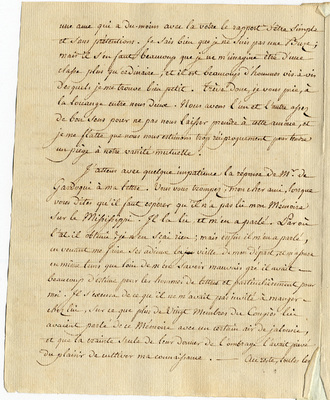 une ame qui a du moins avec la votre le rapport d'être simple
et sans prétentions. Je sais bien que je ne suis pas une Buse;
mais il s'en faut beaucoup que je ne m'imagine être d'une
classe plus qu'ordinaire, et il est beaucoup d'hommes vis-à-vis
desquels je me trouve bien petit. Trève donc, je vous prie, à
la louange entre nous deux. Nous avons l'un et l'autre assez
de bon sens pour ne pas nous laisser prendre à cette amorce, et
je me flatte que nous nous estimons trop réciproquement pour tendre
un piège à notre vanité mutuelle.
J'attens avec quelque impatience la réponse de Mr. de
Gardoqui à ma lettre. Vous vous trompez, mon cher ami, lorsque
vous dites qu'il faut espérer qu'il n'a pas lu mon Memoire
sur le Mississippi. Il l'a lu et m'en a parlé. L'avoir
t'il obtenu? je n'en sais rien; mais enfin il m'en a parlé,
en venant me faire ses adieux la veille de mon départ, et m'assura
en même tems que loin de m'en savoir mauvais gré il avait
beaucoup d'estime pour les hommes de lettres et particulièrement pour
moi. Il s'excusa de ce que il ne m'avait pas invité à manger
chez lui, sur ce que plus de vingt Membres du Congrès lui
avaient parlé de ce Mémoire avec un certain air de jalousie,
et que la crainte seule de leur donner de l'ombrage l'avait privé
du plaisir de cultiver ma connaissance. — Au reste, toutes les